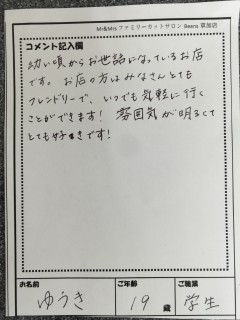 Mr&Mrs ファミリーカットサロン Beans 草加店
コメント記入欄
幼い頃からお世話になっているお店
です。お店の方はみなさんとても
フレンドリーで、いつでも気軽に行く
ことができます! 雰囲気が明るくて
とても好きです!
お名前 ご年齢 ご職業
ゆうき 19 歳 学生